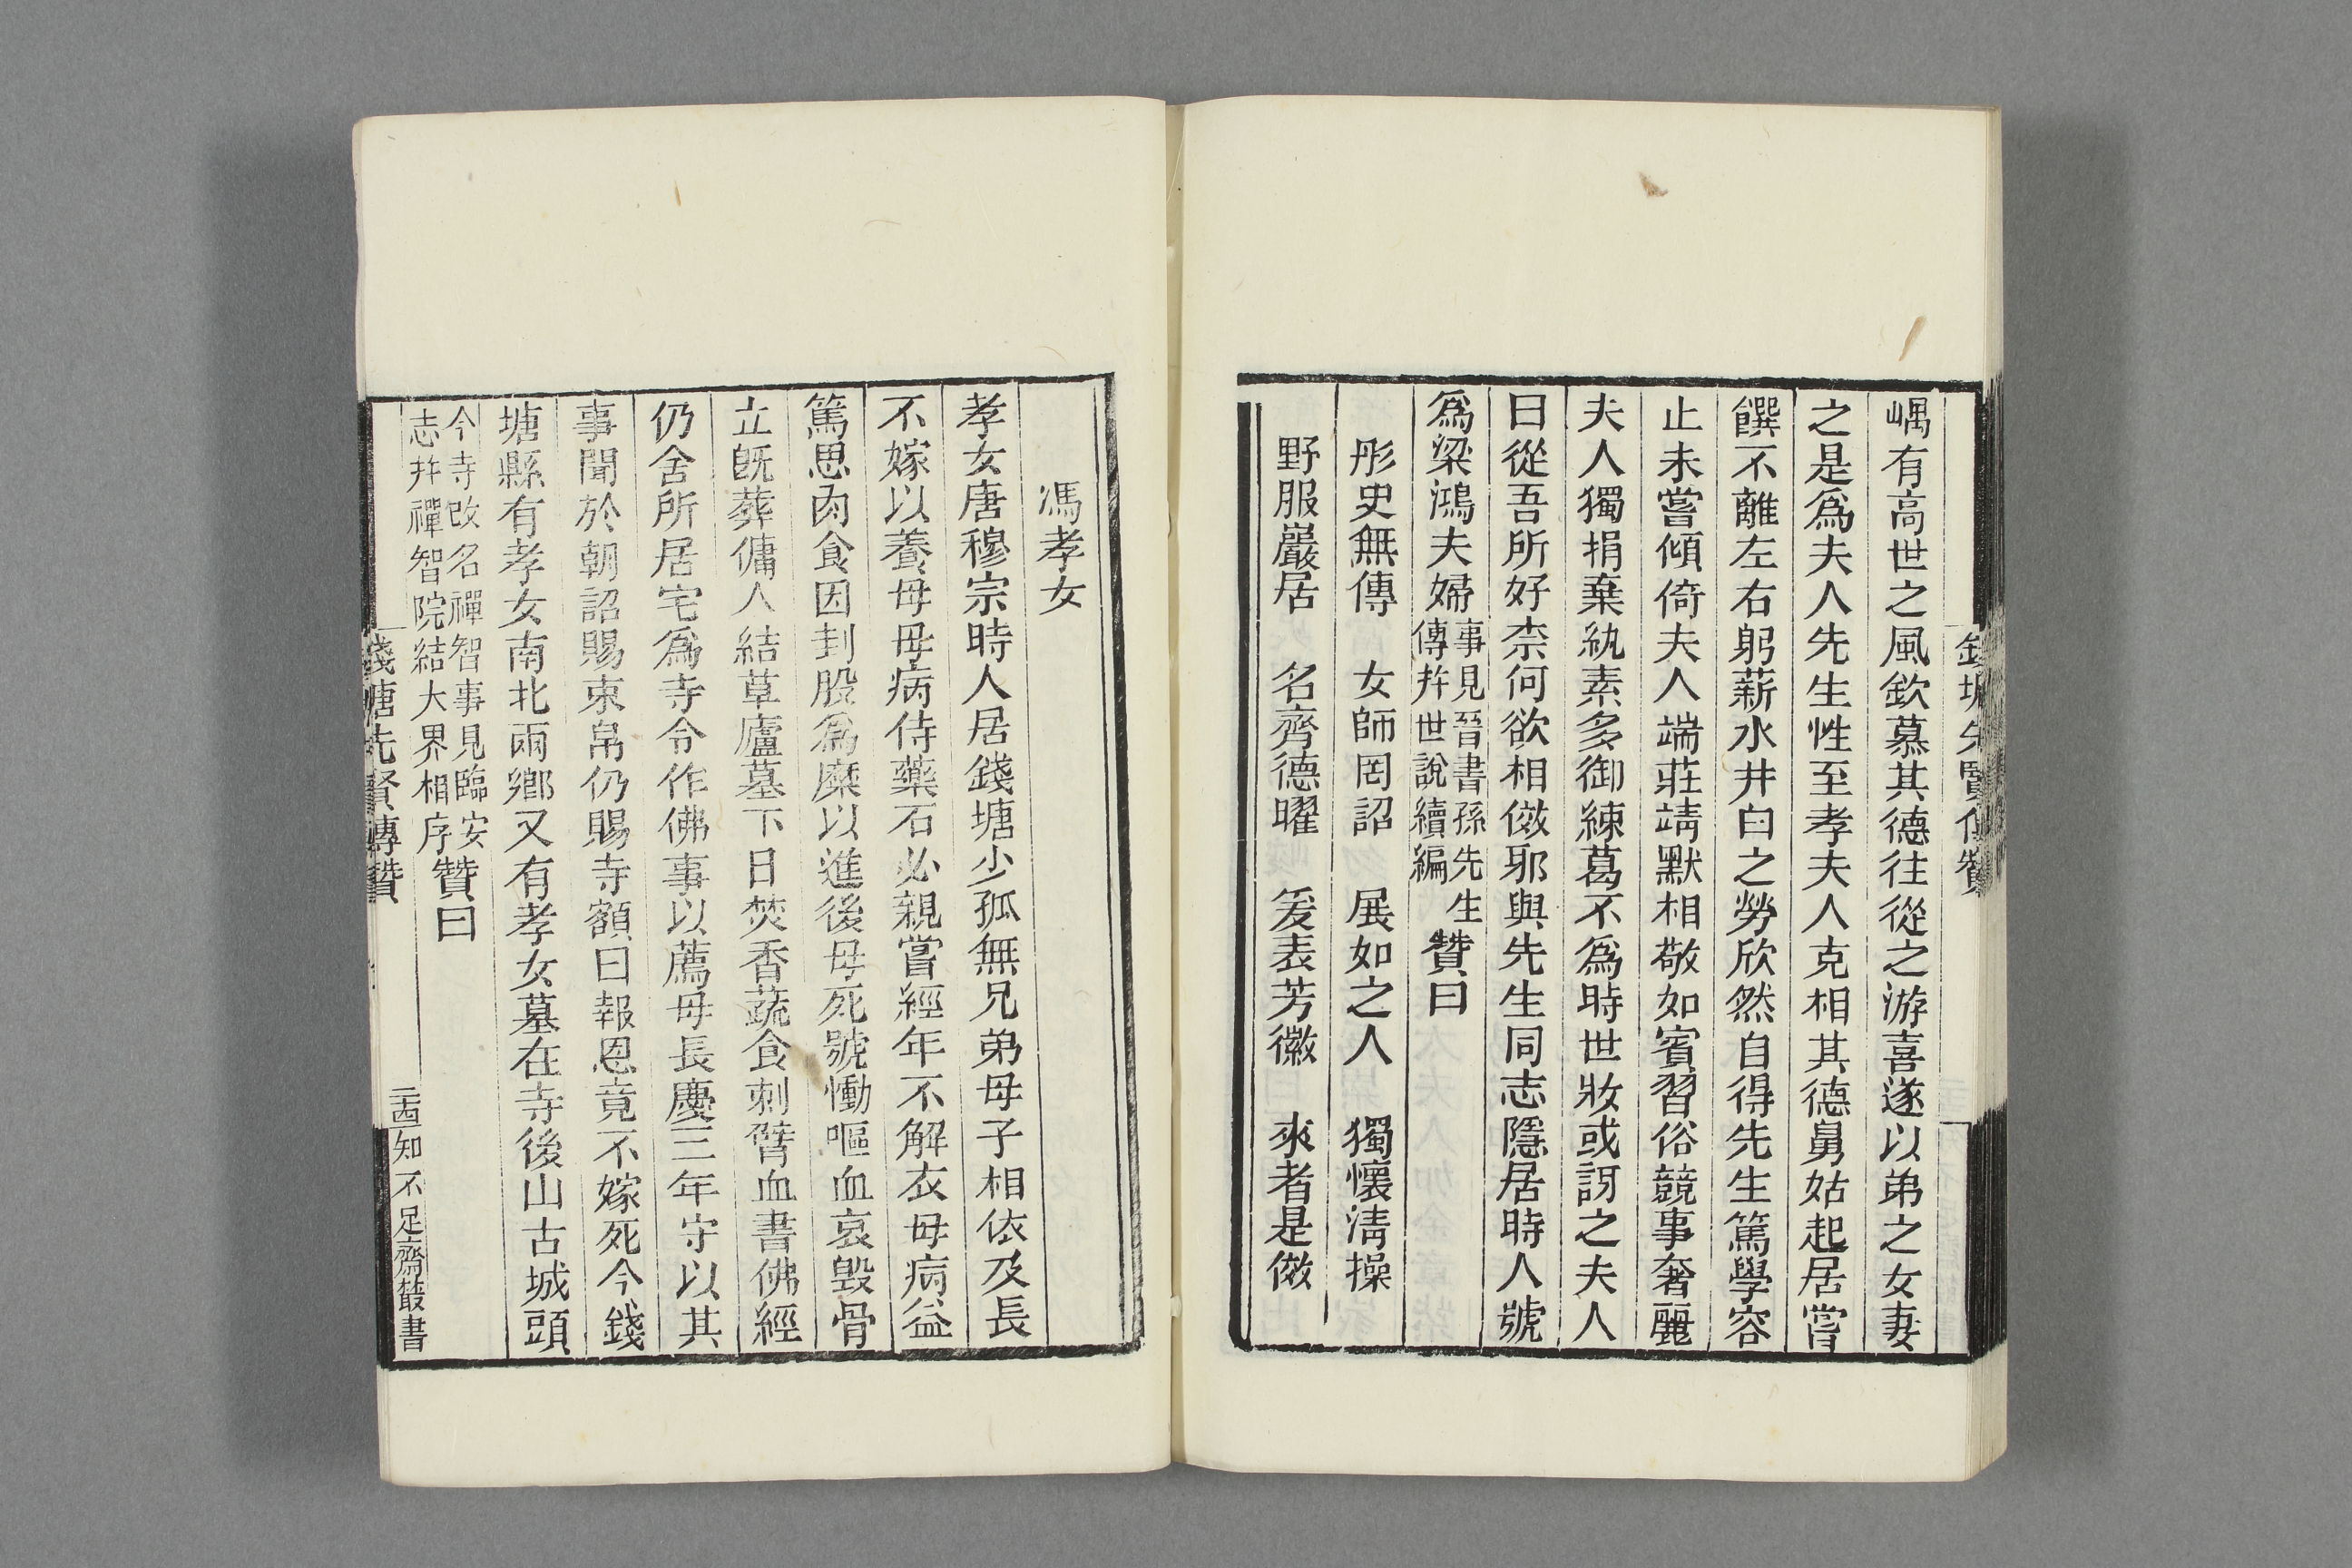 嵎有高世之風欽慕其德往從之游喜遂以弟之女妻
之是爲夫人先生性至孝夫人克相其德舅姑起居嘗
饌不離左右躬薪水井臼之勞欣然自得先生篤學容
止未嘗傾倚夫人端莊靖默相敬如賓習俗競事奢麗
夫人獨捐棄紈素多御練葛不爲時世妝或訝之夫人
曰從吾所好柰何欲相傚邪與先生同志隱居時人號
爲梁鴻夫婦事見晉書孫先生傳幷世說續編贊曰
彤史無傳 女師罔詔 展如之人 獨懷淸操
野服巖居 名齊德曜 爰表芳徽 來者是傚
馮孝女
孝女唐穆宗時人居錢塘少孤無兄弟母子相依及長
不嫁以養母母病侍藥石必親嘗經年不解衣母病益
篤思肉食因刲股爲糜以進後母死號慟嘔血哀毀骨
立旣葬傭人結草廬墓下日焚香蔬食刺臂血書佛經
仍舍所居宅爲寺令作佛事以薦母長慶三年守以其
事聞於朝詔賜束帛仍賜寺額曰報恩竟不嫁死今錢
塘縣有孝女南北兩鄉又有孝女墓在寺後山古城頭
今寺改名禪智事見臨安志幷禪智院結大界相序贊曰
錢塘先賢傳贊
二十四
知不足齋叢書